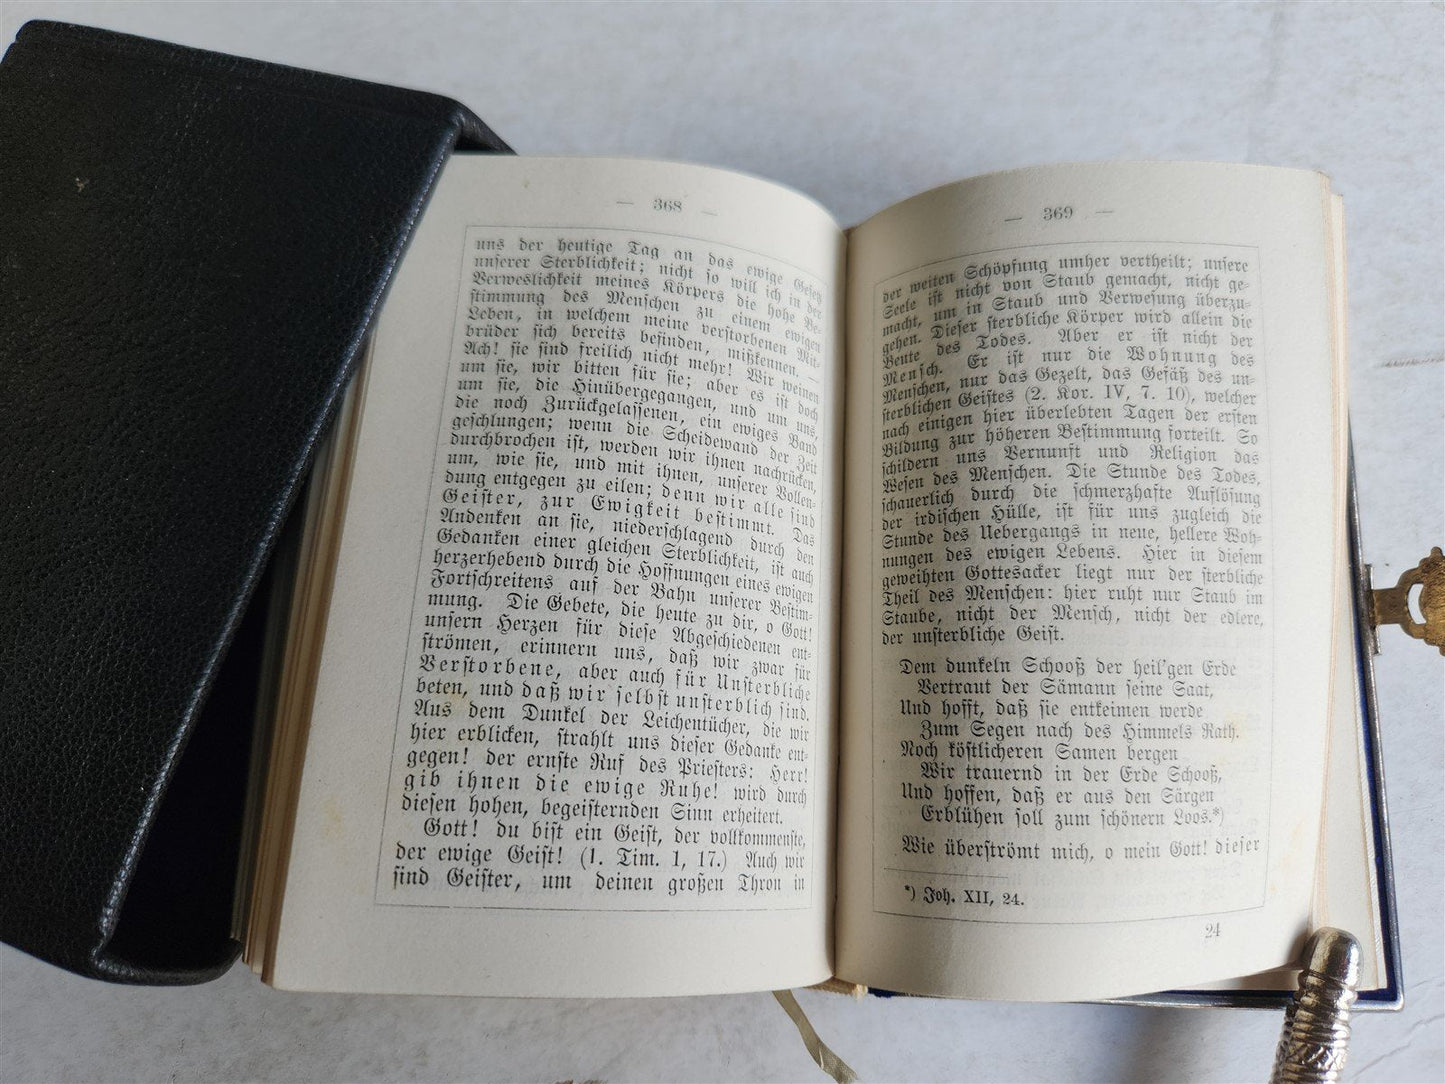 — 368 —
uns der heutige Tag an das ewige Gesetz
unserer Sterblichkeit; nicht so will ich in der
Verweslichkeit meines Körpers die hohe Be-
stimmung des Menschen zu einem ewigen
Leben, in welchem meine verstorbenen Mit-
brüder sich bereits befinden, mißkennen. —
Ach! sie sind freilich nicht mehr! Wir weinen
um sie, wir bitten für sie; aber es ist doch
um sie, die Hinübergegangen, und um uns,
die noch Zurückgelassenen, ein ewiges Band
geschlungen; wenn die Scheidewand der Zeit
durchbrochen ist, werden wir ihnen nachrücken,
um, wie sie, und mit ihnen, unserer Vollen-
dung entgegen zu eilen; denn wir alle sind
Geister, zur Ewigkeit bestimmt. Das
Andenken an sie, niederschlagend durch den
Gedanken einer gleichen Sterblichkeit, ist auch
herzerhebend durch die Hoffnungen eines ewigen
Fortschreitens auf der Bahn unserer Bestim-
mung. Die Gebete, die heute zu dir, o Gott!
unsern Herzen für diese Abgeschiedenen ent-
strömen, erinnern uns, daß wir zwar für
Verstorbene, aber auch für Unsterbliche
beten, und daß wir selbst unsterblich sind.
Aus dem Dunkel der Leichentücher, die wir
hier erblicken, strahlt uns dieser Gedanke ent-
gegen! der ernste Ruf des Priesters: Herr!
gib ihnen die ewige Ruhe! wird durch
diesen hohen, begeisternden Sinn erheitert.
Gott! du bist ein Geist, der vollkommenste,
der ewige Geist! (1. Tim. 1, 17.) Auch wir
sind Geister, um deinen großen Thron in
— 369 —
der weiten Schöpfung umher vertheilt; unsere
Seele ist nicht von Staub gemacht, nicht ge-
macht, um in Staub und Verwesung überzu-
gehen. Dieser sterbliche Körper wird allein die
Beute des Todes. Aber er ist nicht der
Mensch. Er ist nur die Wohnung des
Menschen, nur das Gezelt, das Gefäß des un-
sterblichen Geistes (2. Kor. IV, 7. 10), welcher
nach einigen hier überlebten Tagen der ersten
Bildung zur höheren Bestimmung forteilt. So
schildern uns Vernunft und Religion das
Wesen des Menschen. Die Stunde des Todes,
schauerlich durch die schmerzhafte Auflösung
der irdischen Hülle, ist für uns zugleich die
Stunde des Uebergangs in neue, hellere Woh-
nungen des ewigen Lebens. Hier in diesem
geweihten Gottesacker liegt nur der sterbliche
Theil des Menschen: hier ruht nur Staub im
Staube, nicht der Mensch, nicht der edlere,
der unsterbliche Geist.
Dem dunkeln Schooß der heil'gen Erde
Vertraut der Sämann seine Saat,
Und hofft, daß sie entkeimen werde
Zum Segen nach des Himmels Rath.
Noch köstlicheren Samen bergen
Wir trauernd in der Erde Schooß,
Und hoffen, daß er aus den Särgen
Erblühen soll zum schönern Loos.*)
Wie überströmt mich, o mein Gott! dieser
*) Joh. XII, 24.
24